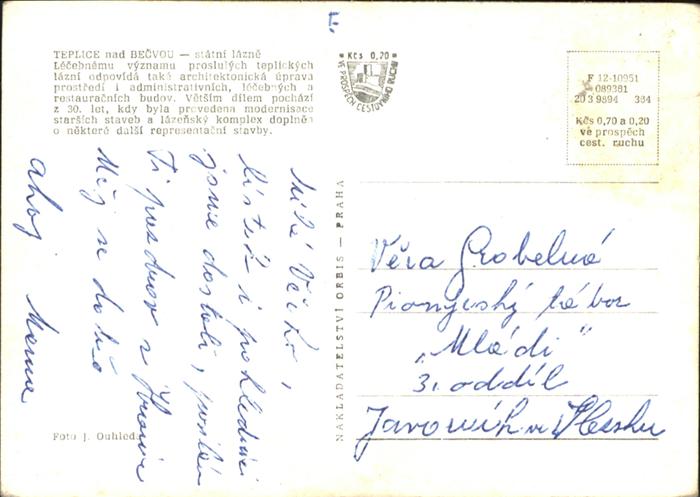 F.
TEPLICE nad BEČVOU — státní lázně
Léčebnému významu proslulých teplických
lázní odpovídá také architektonická úprava
prostředí i administrativních, léčebných a
restauračních budov. Větším dílem pochází
z 30. let, kdy byla provedena modernisace
starších staveb a lázeňský komplex doplněn
o některé další representační stavby.
Kčs 0,70
VE PROSPĚCH CESTOVNÍHO RUCHU
F 12-10951
089381
20 3 9894 364
Kčs 0,70 a 0,20
ve prospěch
cest. ruchu
Milá Věrko,
lísteček i pohlednici
jsme dostali, posílám
Ti pozdrav z
Měj se dobře
ahoj
NAKLADATELSTVÍ ORBIS — PRAHA
Věra Grobelná
Pionýrský tábor
„Mládí“
3. oddíl
Javorník ve Slezsku
Foto J. Ouhleda